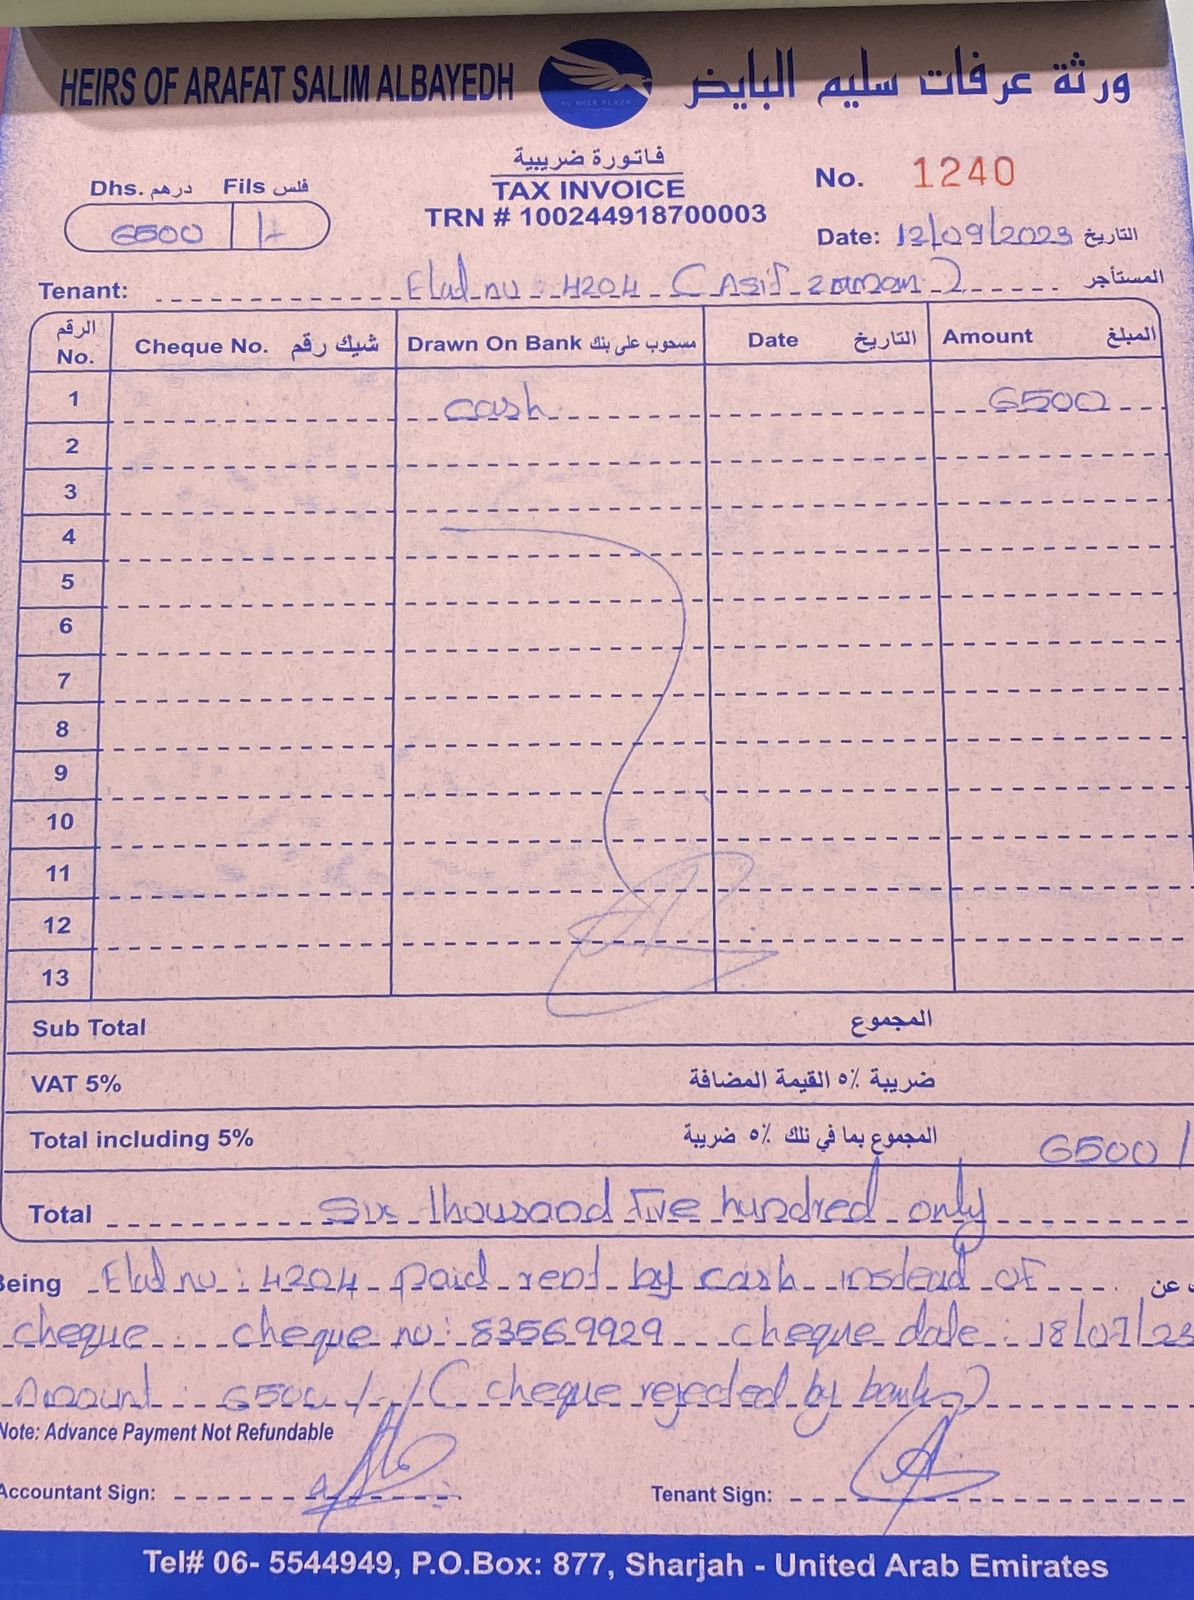 HEIRS OF ARAFAT SALIM ALBAYEDH
AL NISR PLAZA
ورثة عرفات سليم البايض
فاتورة ضريبية
TAX INVOICE
TRN # 100244918700003
Dhs. درهم Fils فلس
6500
No. 1240
Date: 12/09/2023 التاريخ
Tenant: Flad nu : 4204 ( Asif zaman ) المستأجر
الرقم No. Cheque No. شيك رقم Drawn On Bank مسحوب على بنك Date التاريخ Amount المبلغ
1 cash 6500
2
3
4
5
6
7
8
9
10
11
12
13
Sub Total المجموع
VAT 5% ضريبة ٥٪ القيمة المضافة
Total including 5% المجموع بما في ذلك ٥٪ ضريبة 6500/
Total Six thousand Five hundred only
Being Flad nu : 4204 paid rent by cash instead of عن
cheque cheque nu : 83569929 cheque date : 18/07/23
Amount : 6500/-/( cheque rejected by bank )
Note: Advance Payment Not Refundable
Accountant Sign: Tenant Sign:
Tel# 06- 5544949, P.O.Box: 877, Sharjah - United Arab Emirates